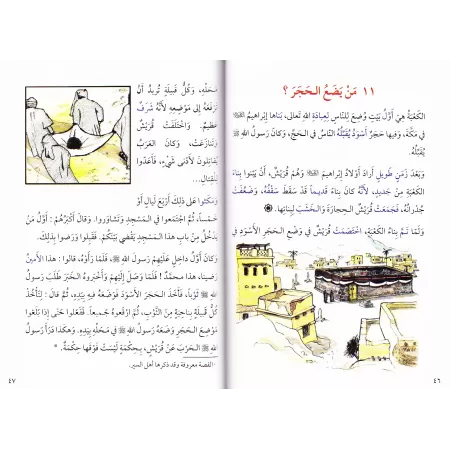 ١١ مَنْ يَضَعُ الـحَجَرَ ؟
الكَعْبَةُ هِيَ أَوَّلُ بَيْتٍ وُضِعَ لِلنَّاسِ لِعِبَادَةِ اللهِ تَعَالَى، بَنَاهَا إِبْرَاهِيمُ ﷺ
فِي مَكَّةَ، وَفِيهَا حَجَرٌ أَسْوَدُ يُقَبِّلُهُ النَّاسُ فِي الحَجِّ، وَكَانَ رَسُولُ اللهِ ﷺ
يُقَبِّلُهُ
وَبَعْدَ زَمَنٍ طَوِيلٍ أَرَادَ أَوْلَادُ إِبْرَاهِيمَ ﷺ وَهُمْ قُرَيْشٌ، أَنْ يَبْنُوا بِنَاءَ
الكَعْبَةِ مِنْ جَدِيدٍ، لِأَنَّهُ كَانَ بِنَاءً قَدِيمًا قَدْ سَقَطَ سَقْفُهُ، وَضَعُفَتْ
جُدْرَانُهُ، فَجَمَعَتْ قُرَيْشٌ الـحِجَارَةَ وَالـخَشَبَ لِبِنَائِهَا.
وَلَمَّا تَمَّ بِنَاءُ الكَعْبَةِ، اخْتَصَمَتْ قُرَيْشٌ فِي وَضْعِ الـحَجَرِ الأَسْوَدِ فِي
٤٦
مَحَلِّهِ، وَكُلُّ قَبِيلَةٍ تُرِيدُ أَنْ
تَرْفَعَهُ إِلَى مَوْضِعِهِ لِأَنَّهُ شَرَفٌ
عَظِيمٌ. وَاخْتَلَفَتْ قُرَيْشٌ
وَتَنَازَعَتْ، وَكَانَ العَرَبُ
يُقَاتِلُونَ لِأَدْنَى شَيْءٍ، فَأَعَدُّوا
لِلْقِتَالِ...
وَمَكَثُوا عَلَى ذَلِكَ أَرْبَعَ لَيَالٍ أَوْ
خَمْسًا، ثُمَّ اجْتَمَعُوا فِي المَسْجِدِ وَتَشَاوَرُوا. وَقَالَ أَكْبَرُهُمْ : أَوَّلُ مَنْ
يَدْخُلُ مِنْ بَابِ هَذَا المَسْجِدِ يَقْضِي بَيْنَكُمْ. فَقَبِلُوا وَرَضُوا بِذَلِكَ.
وَكَانَ أَوَّلَ دَاخِلٍ عَلَيْهِمْ رَسُولُ اللهِ ﷺ، فَلَمَّا رَأَوْهُ، قَالُوا : هَذَا الأَمِينُ
رَضِينَا، هَذَا مُحَمَّدٌ ! فَلَمَّا وَصَلَ إِلَيْهِمْ وَأَخْبَرُوهُ الخَبَرَ طَلَبَ رَسُولُ
اللهِ ﷺ ثَوْبًا، فَأَخَذَ الحَجَرَ الأَسْوَدَ فَوَضَعَهُ فِيهِ بِيَدِهِ، ثُمَّ قَالَ : لِتَأْخُذْ
كُلُّ قَبِيلَةٍ بِنَاحِيَةٍ مِنَ الثَّوْبِ، ثُمَّ ارْفَعُوهُ جَمِيعًا. فَفَعَلُوا حَتَّى إِذَا بَلَغُوا
مَوْضِعَ الحَجَرِ وَضَعَهُ رَسُولُ اللهِ ﷺ فِي مَحَلِّهِ بِيَدِهِ. وَهَكَذَا دَرَأَ رَسُولُ
اللهِ ﷺ الـحَرْبَ عَنْ قُرَيْشٍ، بِحِكْمَةٍ لَيْسَتْ فَوْقَهَا حِكْمَةٌ. *
*القصة معروفة وقد ذكرها أهل السير.
٤٧